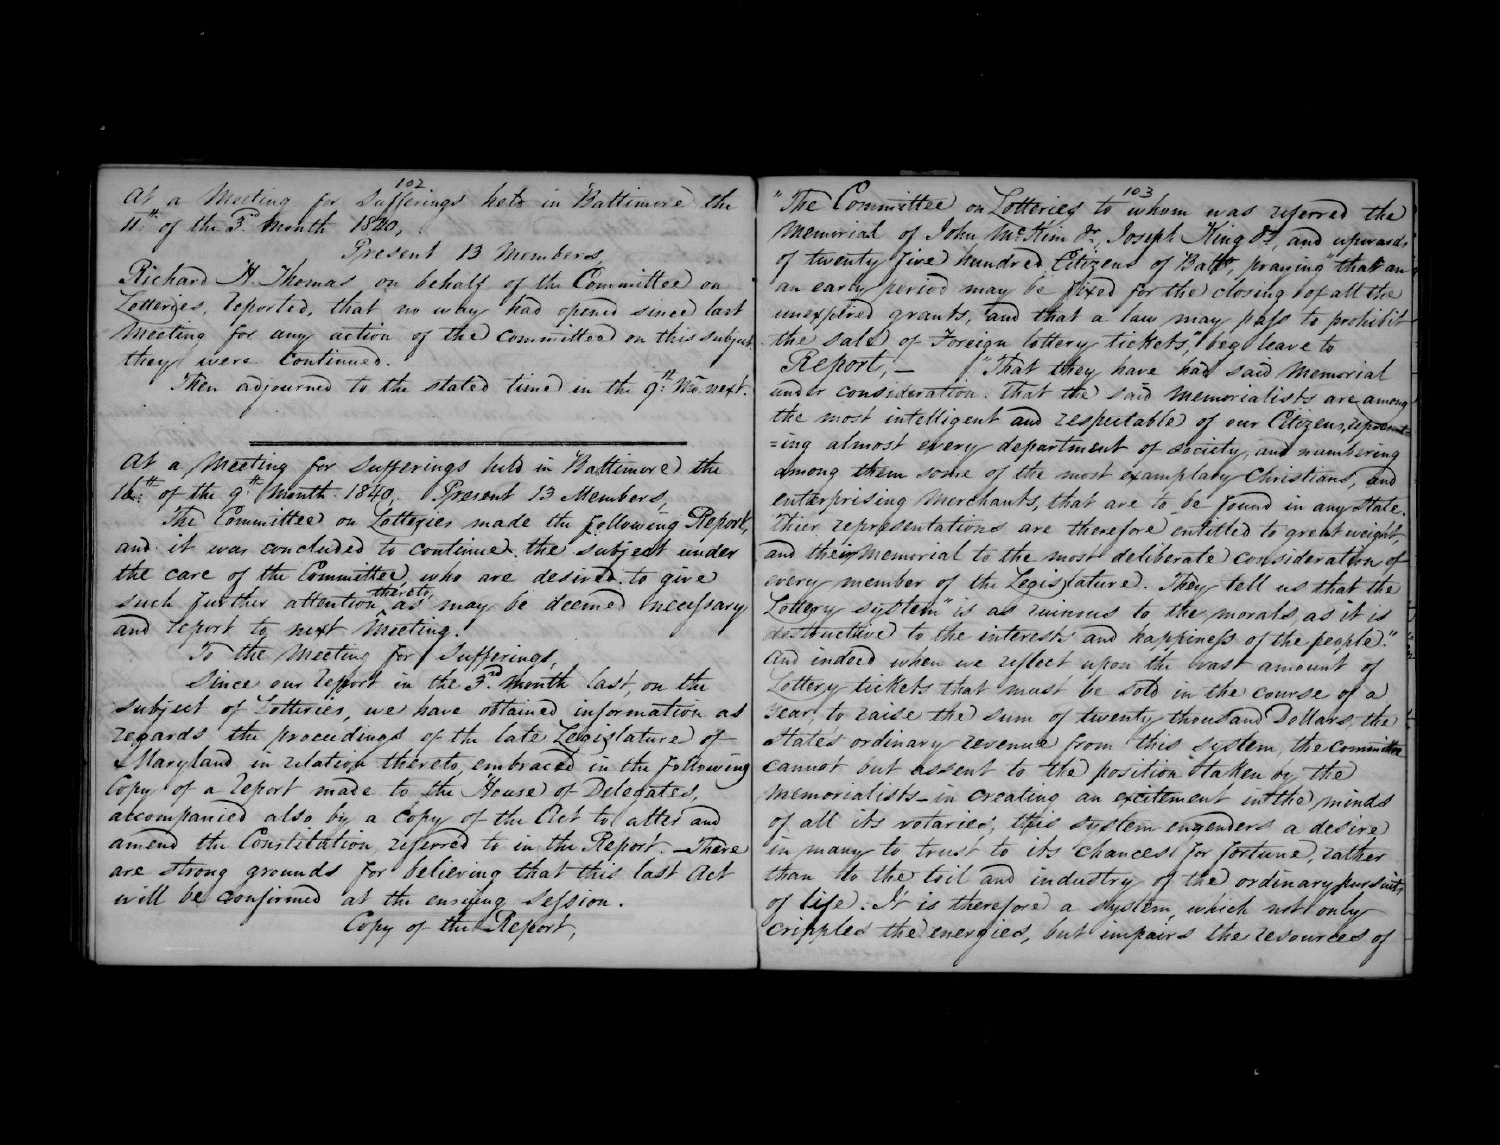 102
At a Meeting for Sufferings held in Baltimore the
11th of the 3d Month 1840,
Present 13 Members,
Richard H. Thomas, on behalf of the Committee on
Lotteries, reported, that no way had opened since last
Meeting for any action of the Committee on this subject
they were Continued.
Then adjourned to the stated time in the 9th Mo. next.
At a Meeting for Sufferings held in Baltimore the
16th of the 9th Month 1840, Present 13 Members,
The Committee on Lotteries made the following Report,
and it was concluded to continue the subject under
the care of the Committee, who are desired to give
such further attention thereto, as may be deemed necessary
and report to next Meeting.
To the Meeting for Sufferings,
Since our report in the 3rd month last, on the
subject of Lotteries, we have obtained information as
regards the proceedings of the late Legislature of
Maryland in relation thereto, embraced in the following
Copy of a report made to the House of Delegates,
accompanied also by a copy of the Act to alter and
amend the Constitution, referred to in the Report. — There
are strong grounds for believing that this last Act
will be confirmed at the ensuing Session.
Copy of the Report,
103
"The Committee on Lotteries to whom was referred the
Memorial of John McKim Jr, Joseph King Jr, and upwards
of twenty five hundred Citizens of Balto, praying "that an
an early period may be fixed for the closing of all the
unexpired grants, and that a law may pass to prohibit
the sale of Foreign lottery tickets," beg leave to
Report, — "That they have had said Memorial
under consideration. That the said Memorialists are among
the most intelligent and respectable of our Citizens, represent=
=ing almost every department of society, and numbering
among them some of the most examplary Christians, and
enterprising Merchants, that are to be found in any State.
Thier representations are therefore entitled to great weight,
and their Memorial to the most deliberate consideration of
every member of the Legislature. They tell us that the
Lottery system "is as ruinous to the morals, as it is
destructive to the interests and happiness of the people."
And indeed when we reflect upon the vast amount of
Lottery tickets that must be sold in the course of a
year, to raise the sum of twenty thousand Dollars, the
State's ordinary revenue from this system, the committee
cannot but assent to the position taken by the
Memorialists — in creating an excitement in the minds
of all its votaries, this system engenders a desire
in many to trust to its chances for fortune, rather
than to the toil and industry of the ordinary pursuits
of life. It is therefore a system, which not only
cripples the energies, but impairs the resources of